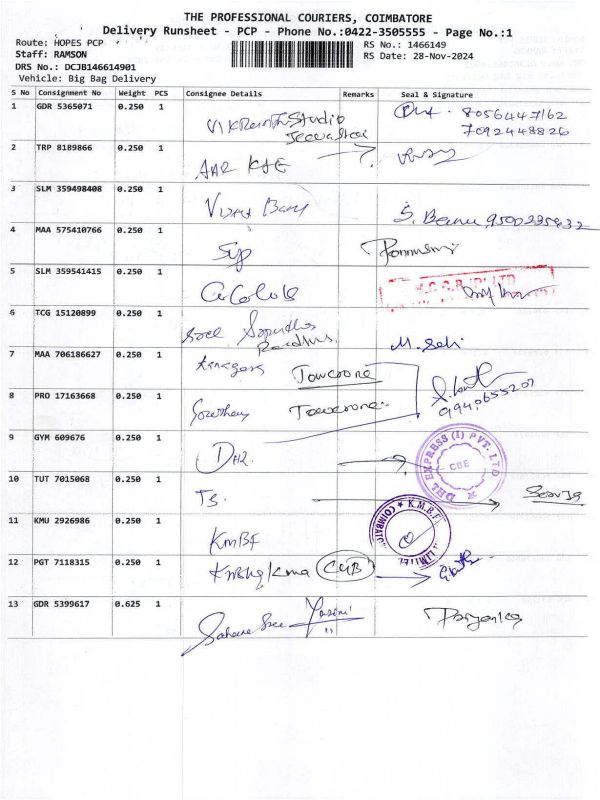 THE PROFESSIONAL COURIERS, COIMBATORE
Delivery Runsheet - PCP - Phone No.:0422-3505555 - Page No.:1
Route: HOPES PCP
RS No.: 1466149
Staff: RAMSON
RS Date: 28-Nov-2024
DRS No.: DCJB146614901
Vehicle: Big Bag Delivery
S No Consignment No Weight PCS Consignee Details Remarks Seal & Signature
1 GDR 5365071 0.250 1 Studio 8056447162
7092448826
2 TRP 8189866 0.250 1 AAR
3 SLM 359498408 0.250 1 S. Banu 9500235832
4 MAA 575410766 0.250 1
5 SLM 359541415 0.250 1
6 TCG 15120899 0.250 1 Sree M. Selvi
7 MAA 706186627 0.250 1 Towerone
8 PRO 17163668 0.250 1 Gowtham Towerone 9940655207
9 GYM 609676 0.250 1 DHL DHL EXPRESS (I) PVT. LTD CBE
10 TUT 7015068 0.250 1 TS.
11 KMU 2926986 0.250 1 KMBF K.M.B.F LIMITED
12 PGT 7118315 0.250 1
13 GDR 5399617 0.625 1 Sahana Sree Priyanka